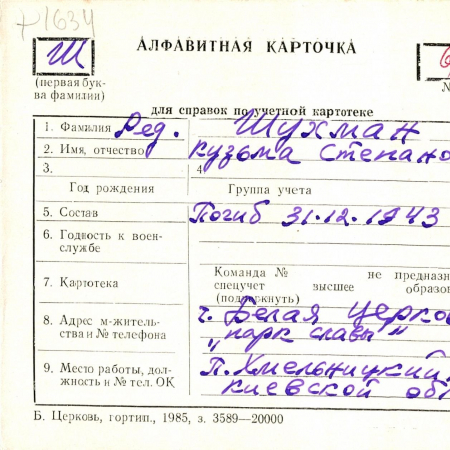 71634
Ш
АЛФАВИТНАЯ КАРТОЧКА
(первая бук-
ва фамилии)
№
для справок по учетной картотеке
1. Фамилия Ред. Шухман
2. Имя, отчество Кузьма Степано
3.
4
Год рождения
Группа учета
5. Состав Погиб 31.12.1943
6. Годность к воен-
службе
7. Картотека
Команда № не предназн
спецучет высшее образо
(подчеркнуть)
8. Адрес м-житель-
ства и № телефона
г. Белая Церко
„парк славы"
9. Место работы, дол-
жность и № тел. ОК
П. Хмельницкий,
Киевской обл
Б. Церковь, гортип., 1985, з. 3589—20000